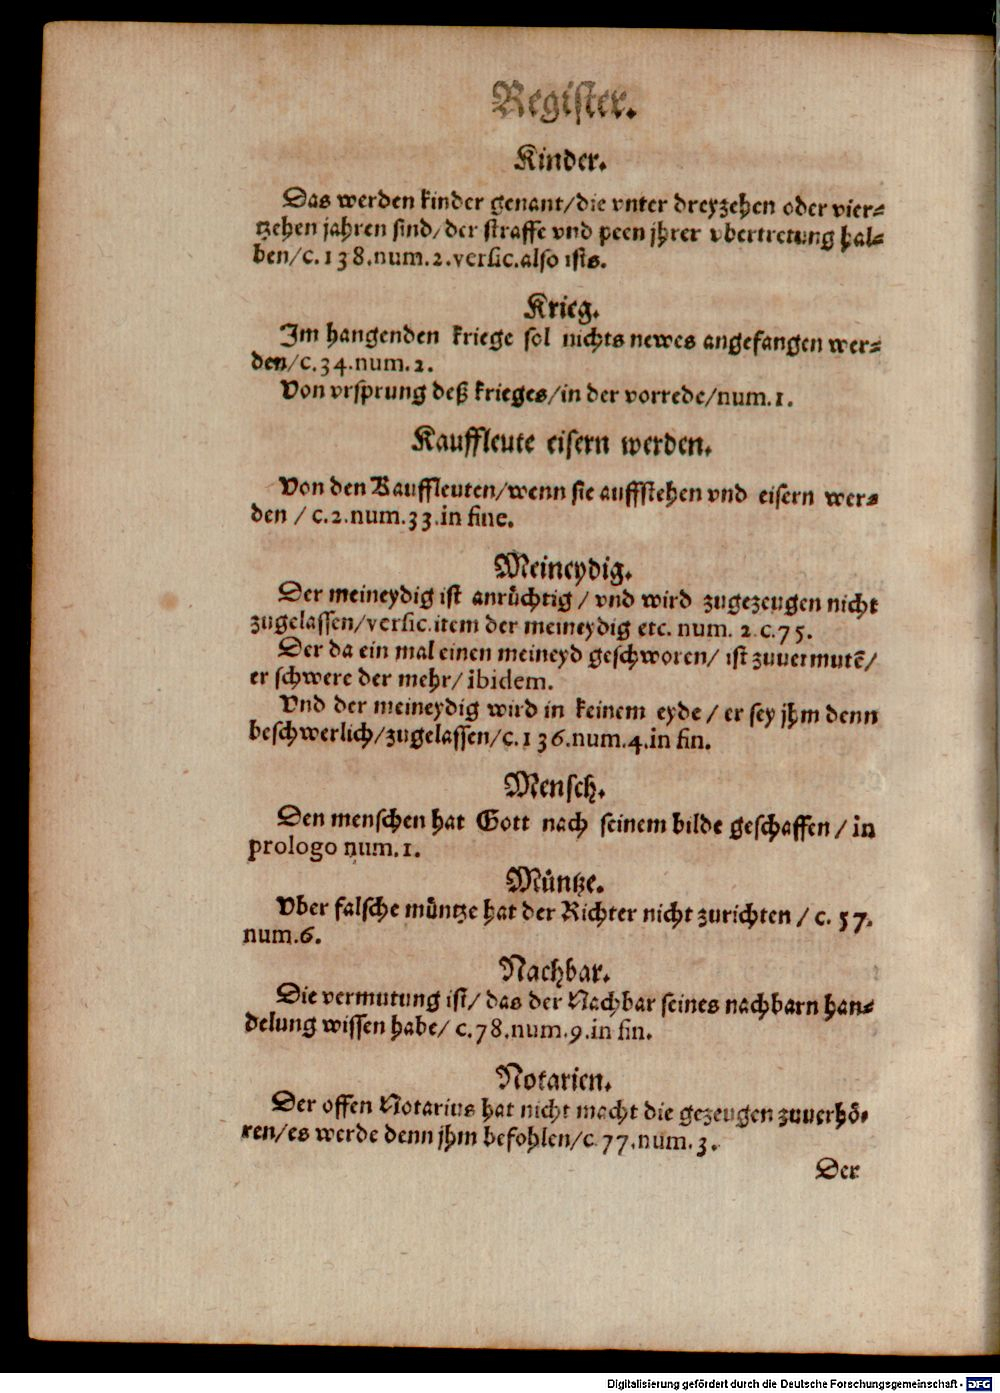 Register.
Kinder.
Das werden kinder genant/die vnter dreyzehen oder vier-
tzehen jahren sind/der straffe vnd peen jhrer vbertretung hal-
ben/c.138.num.2.versic.also ists.
Krieg.
Im hangenden kriege sol nichts newes angefangen wer-
den/c.34.num.2.
Von vrsprung deß krieges/in der vorrede/num.1.
Kauffleute eisern werden.
Von den Kauffleuten/wenn sie auffstehen vnd eisern wer-
den / c.2.num.33.in fine.
Meineydig.
Der meineydig ist anrüchtig / vnd wird zugezeugen nicht
zugelassen/versic.item der meineydig etc. num. 2.c.75.
Der da ein mal einen meineyd geschworen/ ist zuuermutē/
er schwere der mehr/ ibidem.
Vnd der meineydig wird in keinem eyde / er sey jhm denn
beschwerlich/zugelassen/c.136.num.4.in fin.
Mensch.
Den menschen hat Gott nach seinem bilde geschaffen / in
prologo num.1.
Müntze.
Vber falsche müntze hat der Richter nicht zurichten / c. 57.
num.6.
Nachbar.
Die vermutung ist/ das der Nachbar seines nachbarn han-
delung wissen habe/ c.78.num.9.in fin.
Notarien.
Der offen Notarius hat nicht macht die gezeugen zuuerhö-
ren/es werde denn jhm befohlen/c.77.num.3.
Der
Digitalisierung gefördert durch die Deutsche Forschungsgemeinschaft - DFG